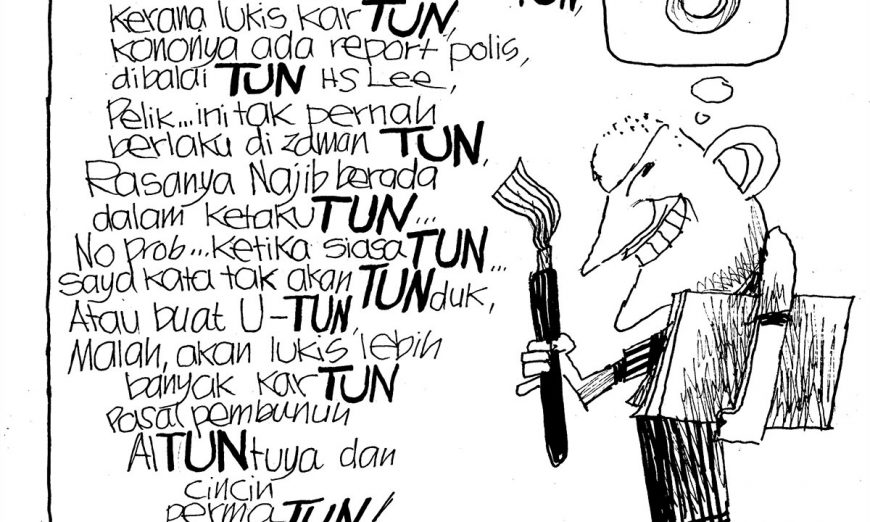 TUN,
kerana lukis kar TUN,
kononya ada report polis,
dibalai TUN HS Lee,
Pelik...ini tak pernah
berlaku di zaman TUN,
Rasanya Najib berada
dalam ketakuTUN...
No prob...ketika siasaTUN...
saya kata tak akan TUNduk,
Atau buat U-TUN,
Malah, akan lukis lebih
banyak karTUN
Pasal pembunuh
AlTUNtuya dan
cincin
permaTUN!